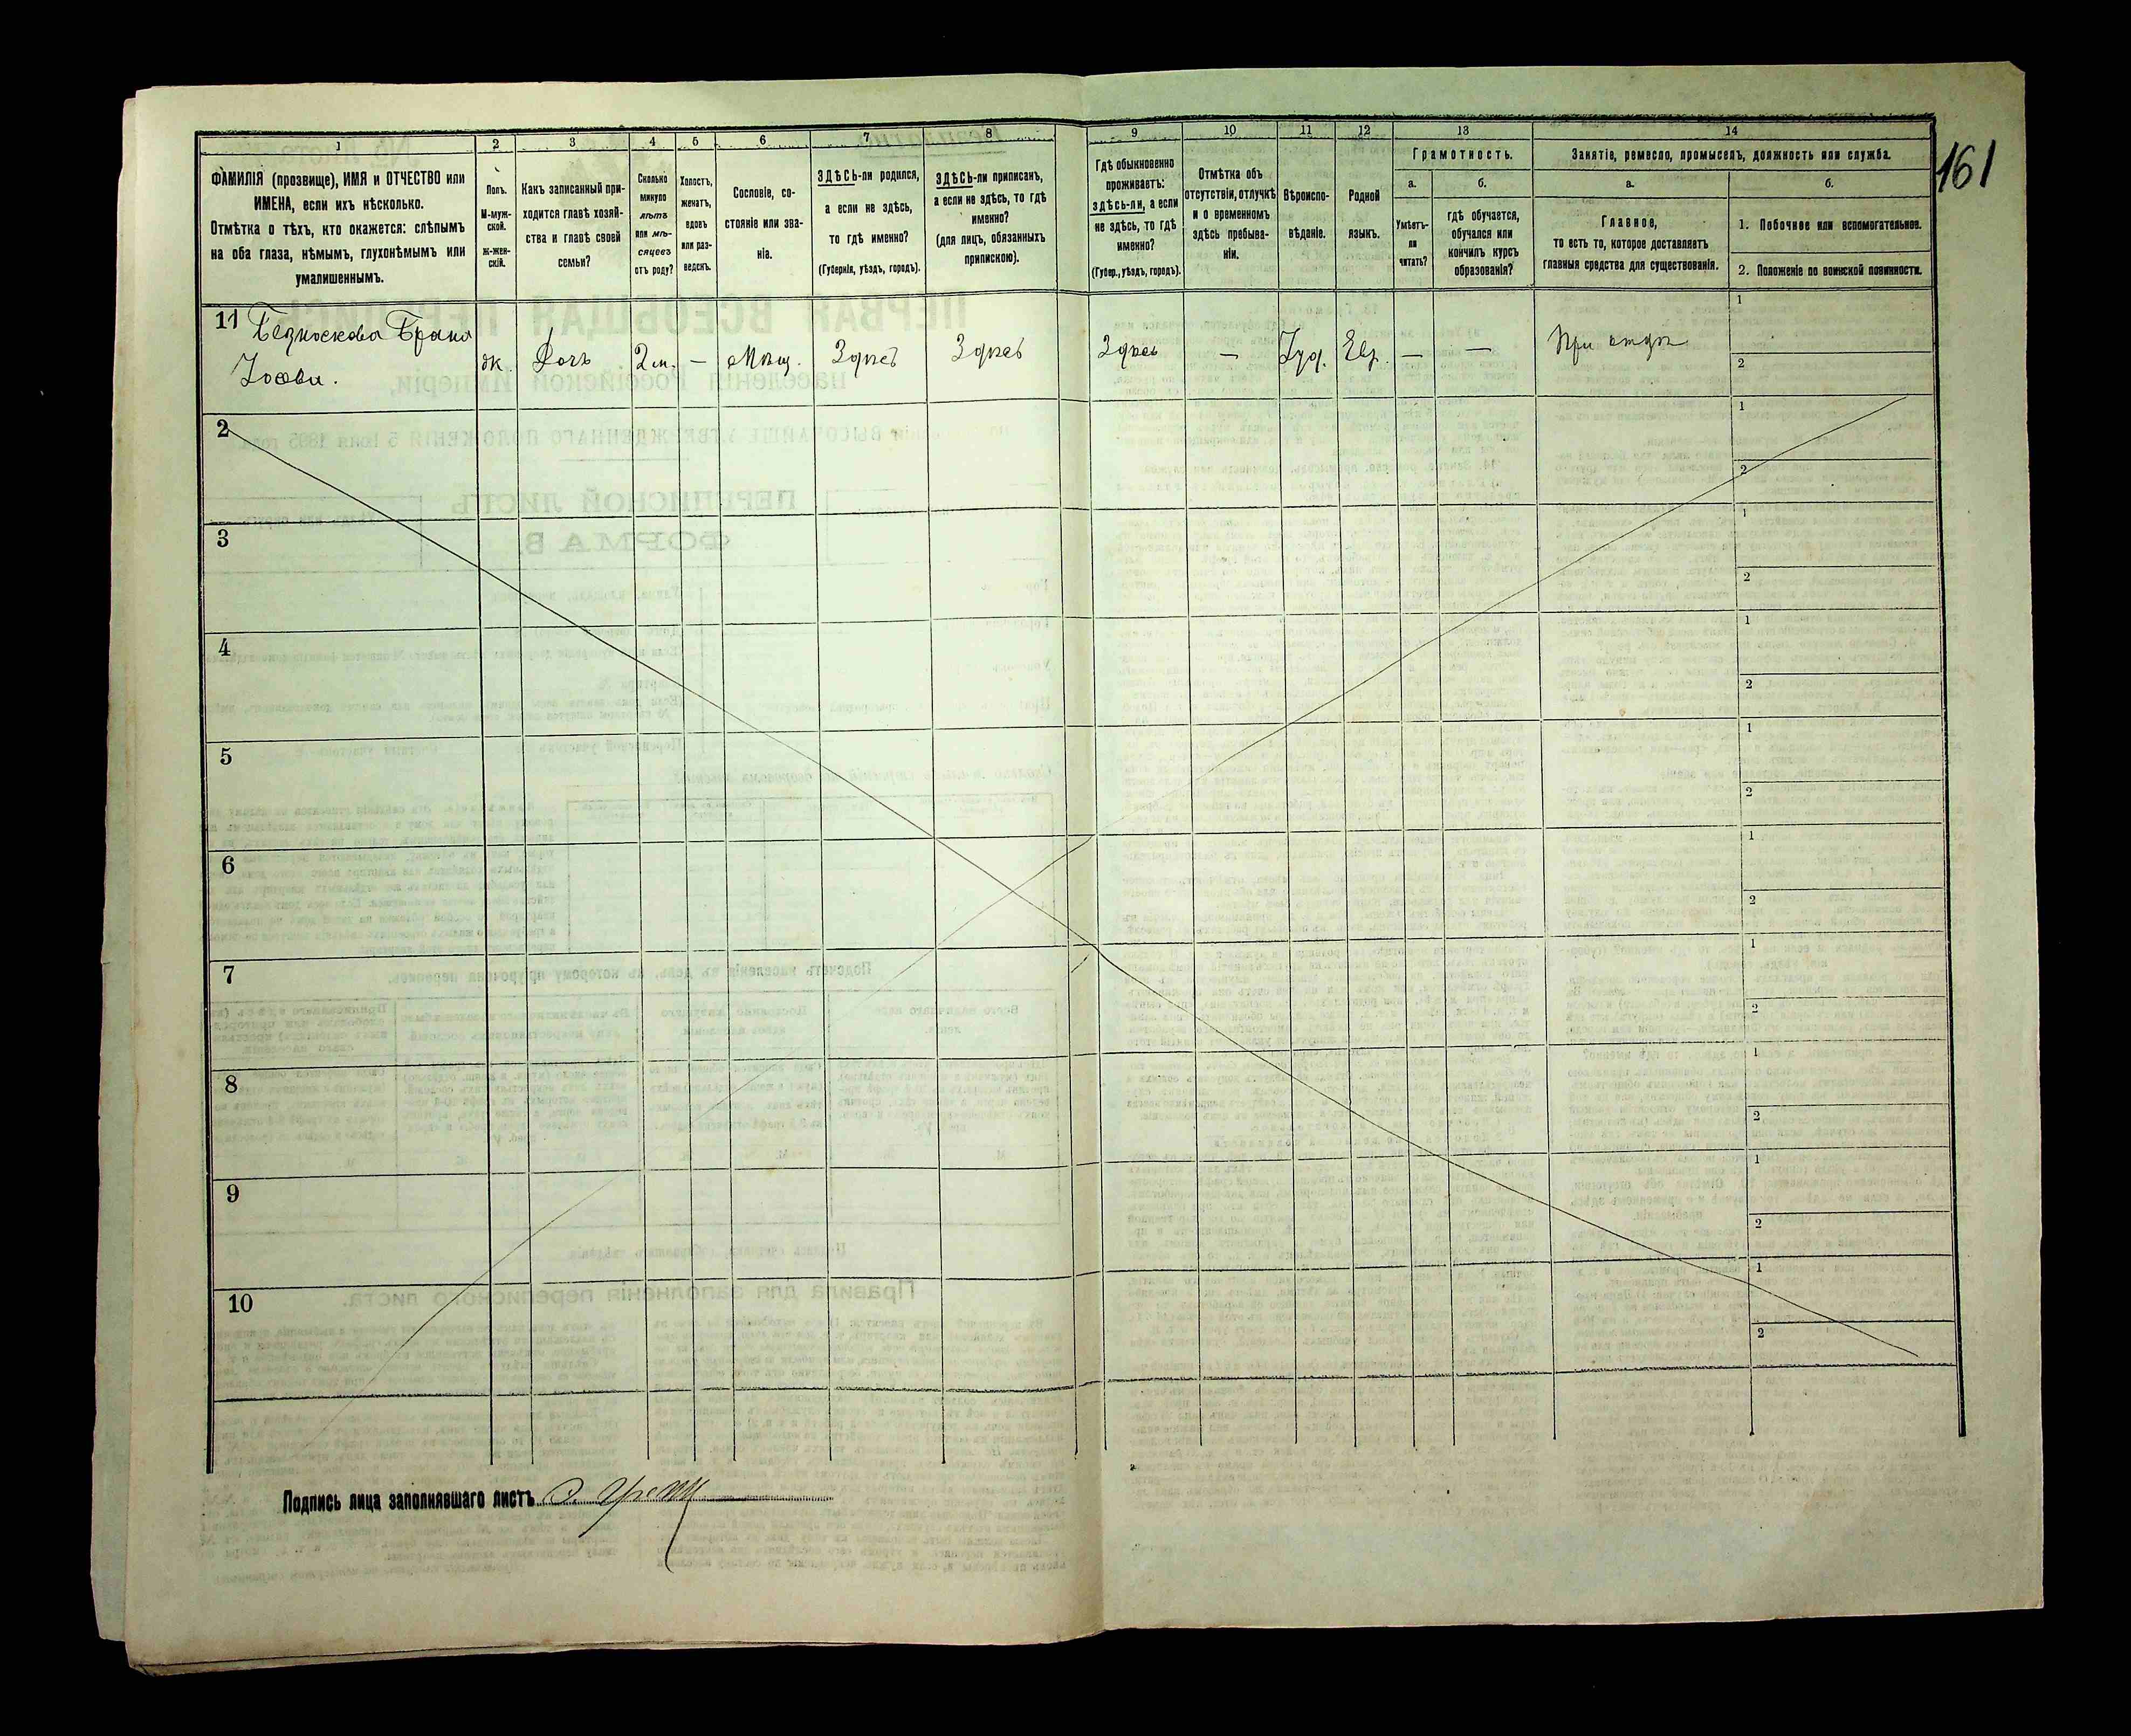 161
1 2 3 4 5 6 7 8 9 10 11 12 13 14
ФАМИЛІЯ (прозвище), ИМЯ и ОТЧЕСТВО или
ИМЕНА, если ихъ нѣсколько.
Отмѣтка о тѣхъ, кто окажется: слѣпымъ
на оба глаза, нѣмымъ, глухонѣмымъ или
умалишеннымъ.
Полъ.
М-муж-
ской.
ж-жен-
скій.
Какъ записанный при-
ходится главѣ хозяй-
ства и главѣ своей
семьи?
Сколько
минуло
лѣтъ
или мѣ-
сяцевъ
отъ роду?
Холостъ,
женатъ,
вдовъ
или раз-
веденъ.
Сословіе, со-
стояніе или зва-
ніе.
ЗДѢСЬ-ли родился,
а если не здѣсь,
то гдѣ именно?
(Губернія, уѣздъ, городъ).
ЗДѢСЬ-ли приписанъ,
а если не здѣсь, то гдѣ
именно?
(для лицъ, обязанныхъ
припискою).
Гдѣ обыкновенно
проживаетъ:
здѣсь-ли, а если
не здѣсь, то гдѣ
именно?
(Губер., уѣздъ, городъ).
Отмѣтка объ
отсутствіи, отлучкѣ
и о временномъ
здѣсь пребыва-
ніи.
Вѣроиспо-
вѣданіе.
Родной
языкъ.
Грамотность.
а.
Умѣетъ-
ли
читать?
б.
гдѣ обучается,
обучался или
кончилъ курсъ
образованія?
Занятіе, ремесло, промыселъ, должность или служба.
а.
Главное,
то есть то, которое доставляетъ
главныя средства для существованія.
б.
1. Побочное или вспомогательное.
2. Положеніе по воинской повинности.
11 ж. Дочь 2 м. — Мѣщ. Здѣсь Здѣсь Здѣсь — Іуд. Евр. — — При отцѣ 1
2
2 1
2
3 1
2
4 1
2
5 1
2
6 1
2
7 1
2
8 1
2
9 1
2
10 1
2
Подпись лица заполнявшаго листъ